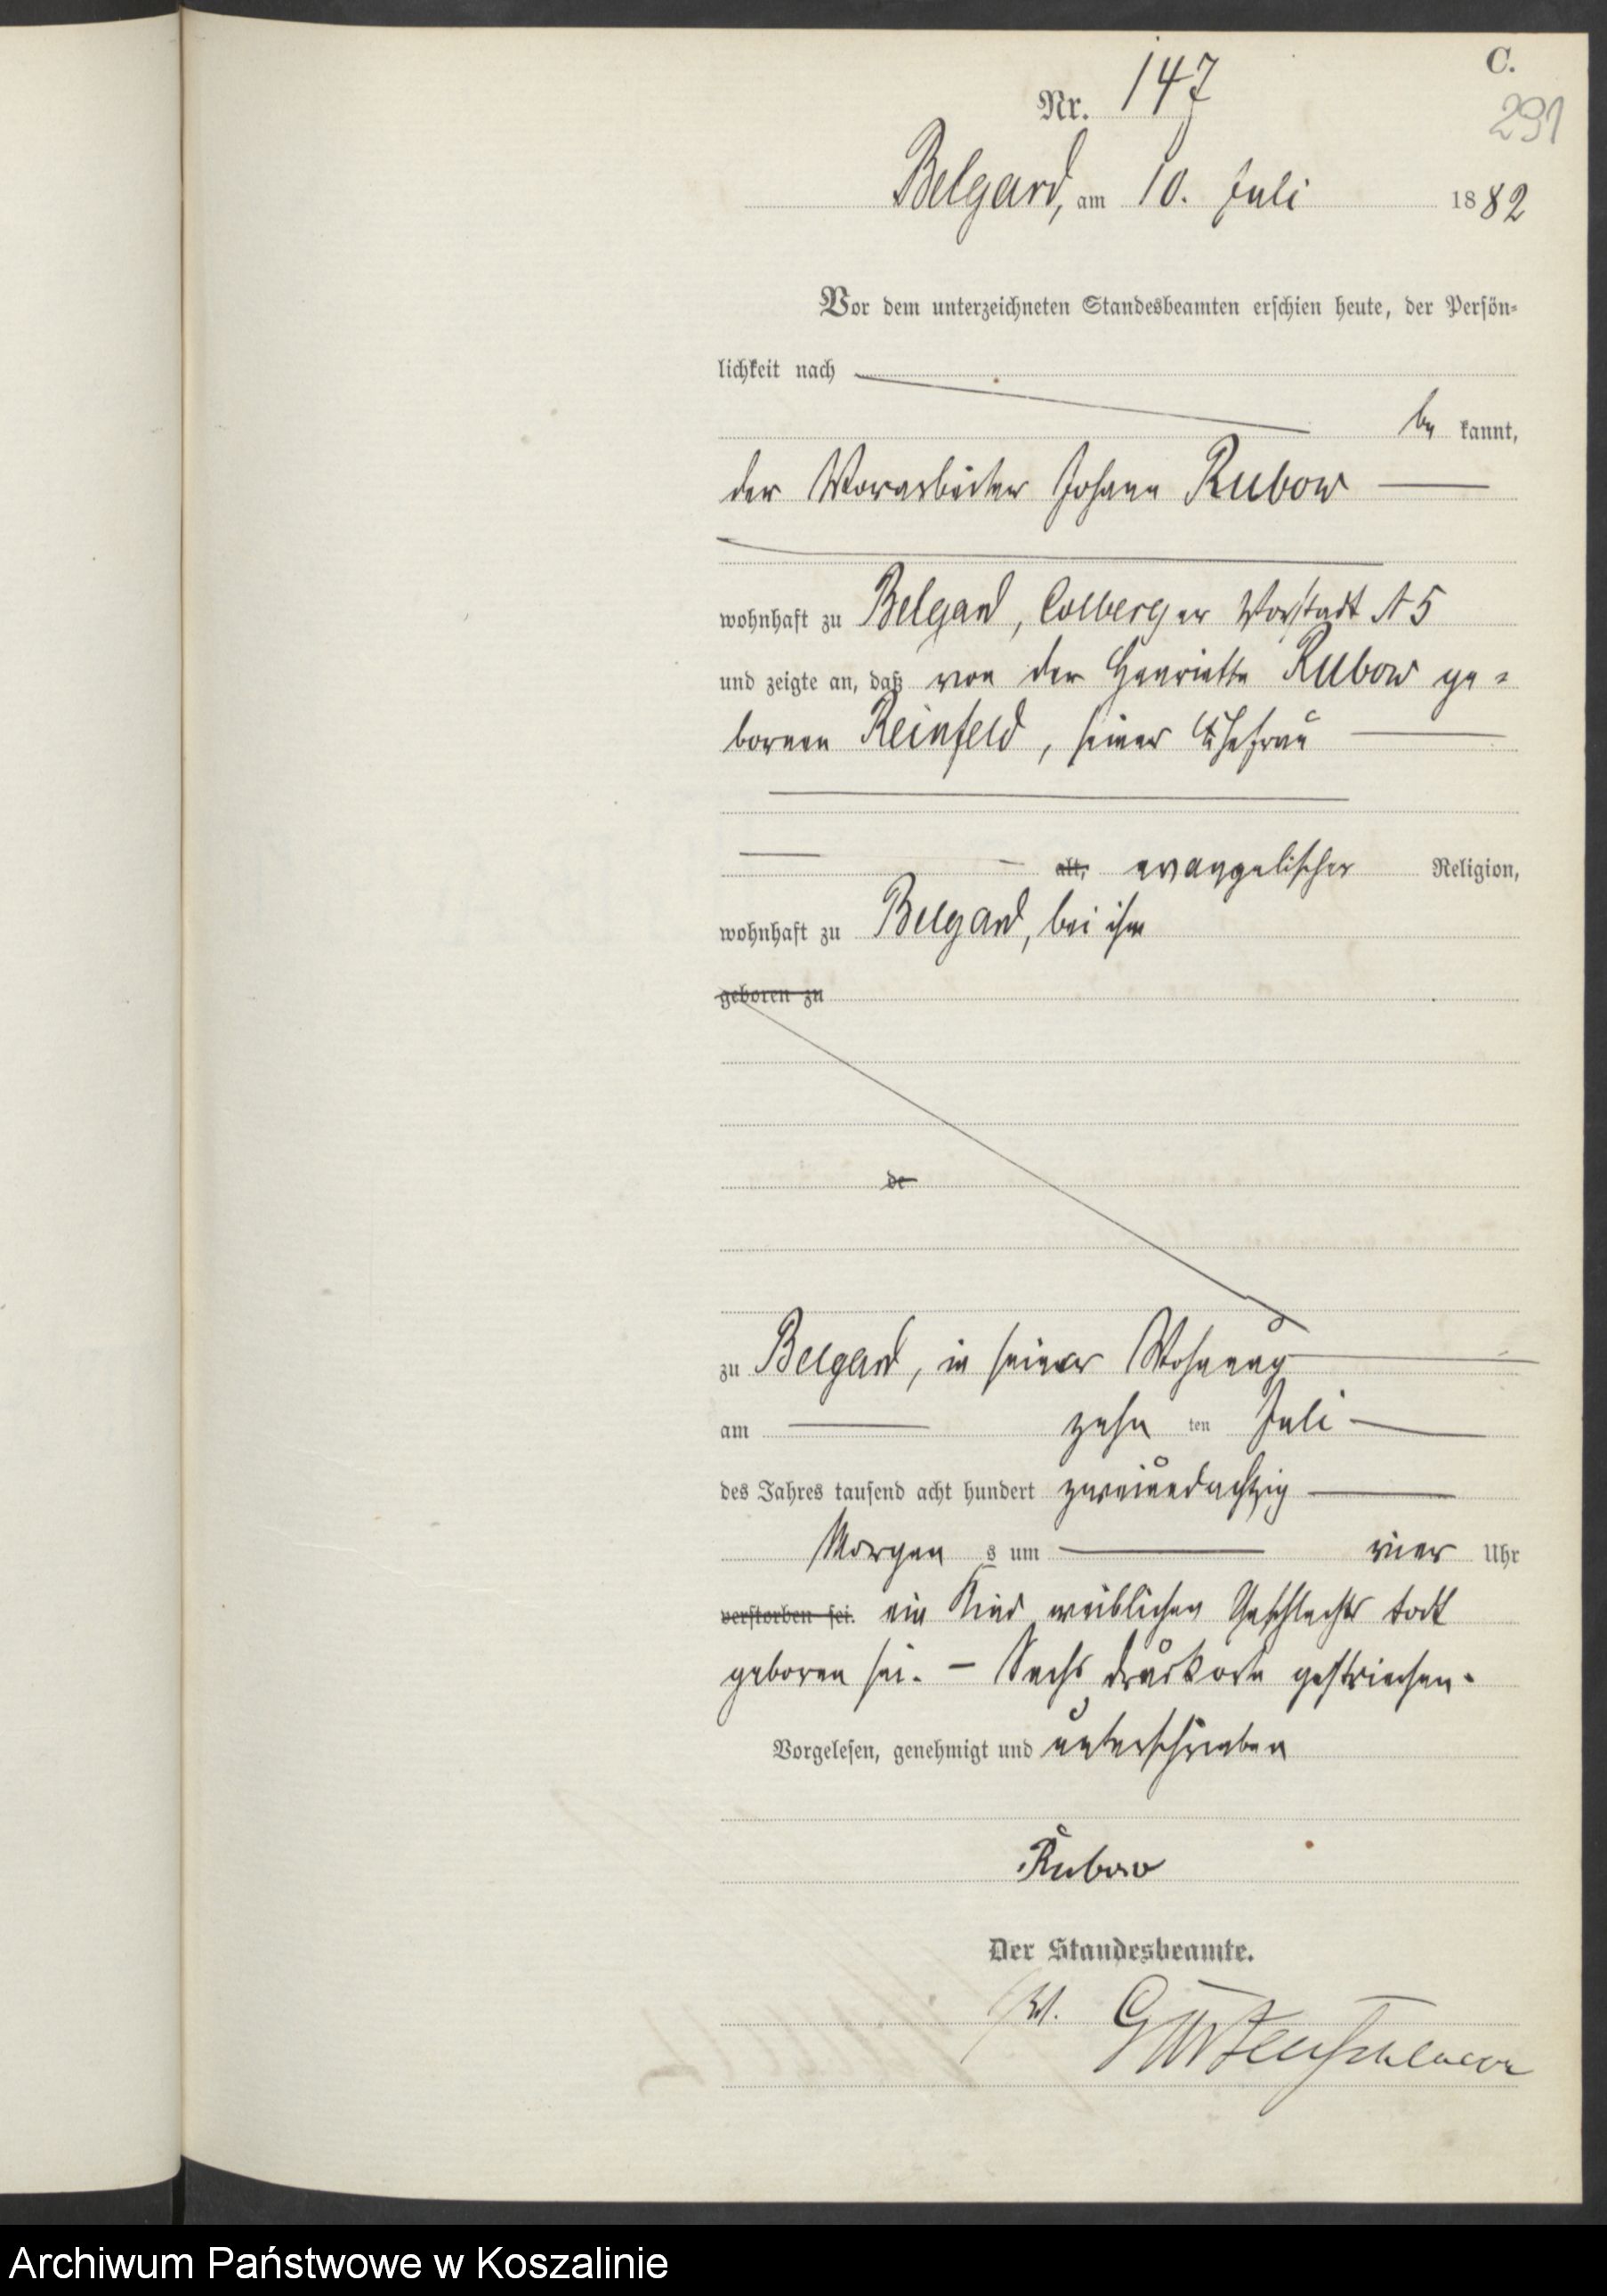 C.
Nr. 147
291
Belgard, am 10. Juli 1882
Vor dem unterzeichneten Standesbeamten erschien heute, der Persön-
lichkeit nach
be kannt,
der Vorarbeiter Johann Rubow
wohnhaft zu Belgard, Colberger Vorstadt № 5
und zeigte an, daß von der Henriette Rubow ge-
bornen Reinfeld, seiner Ehefrau
alt, evangelischer Religion,
wohnhaft zu Belgard, bei ihm
geboren zu
de
zu Belgard, in seiner Wohnung
am zehn ten Juli
des Jahres tausend acht hundert zweiundachtzig
Morgen s um vier Uhr
verstorben sei. ein Kind weiblichen Geschlechts todt
geboren sei. – Sechs Druckworte gestrichen.
Vorgelesen, genehmigt und unterschrieben
Rubow
Der Standesbeamte.
Archiwum Państwowe w Koszalinie